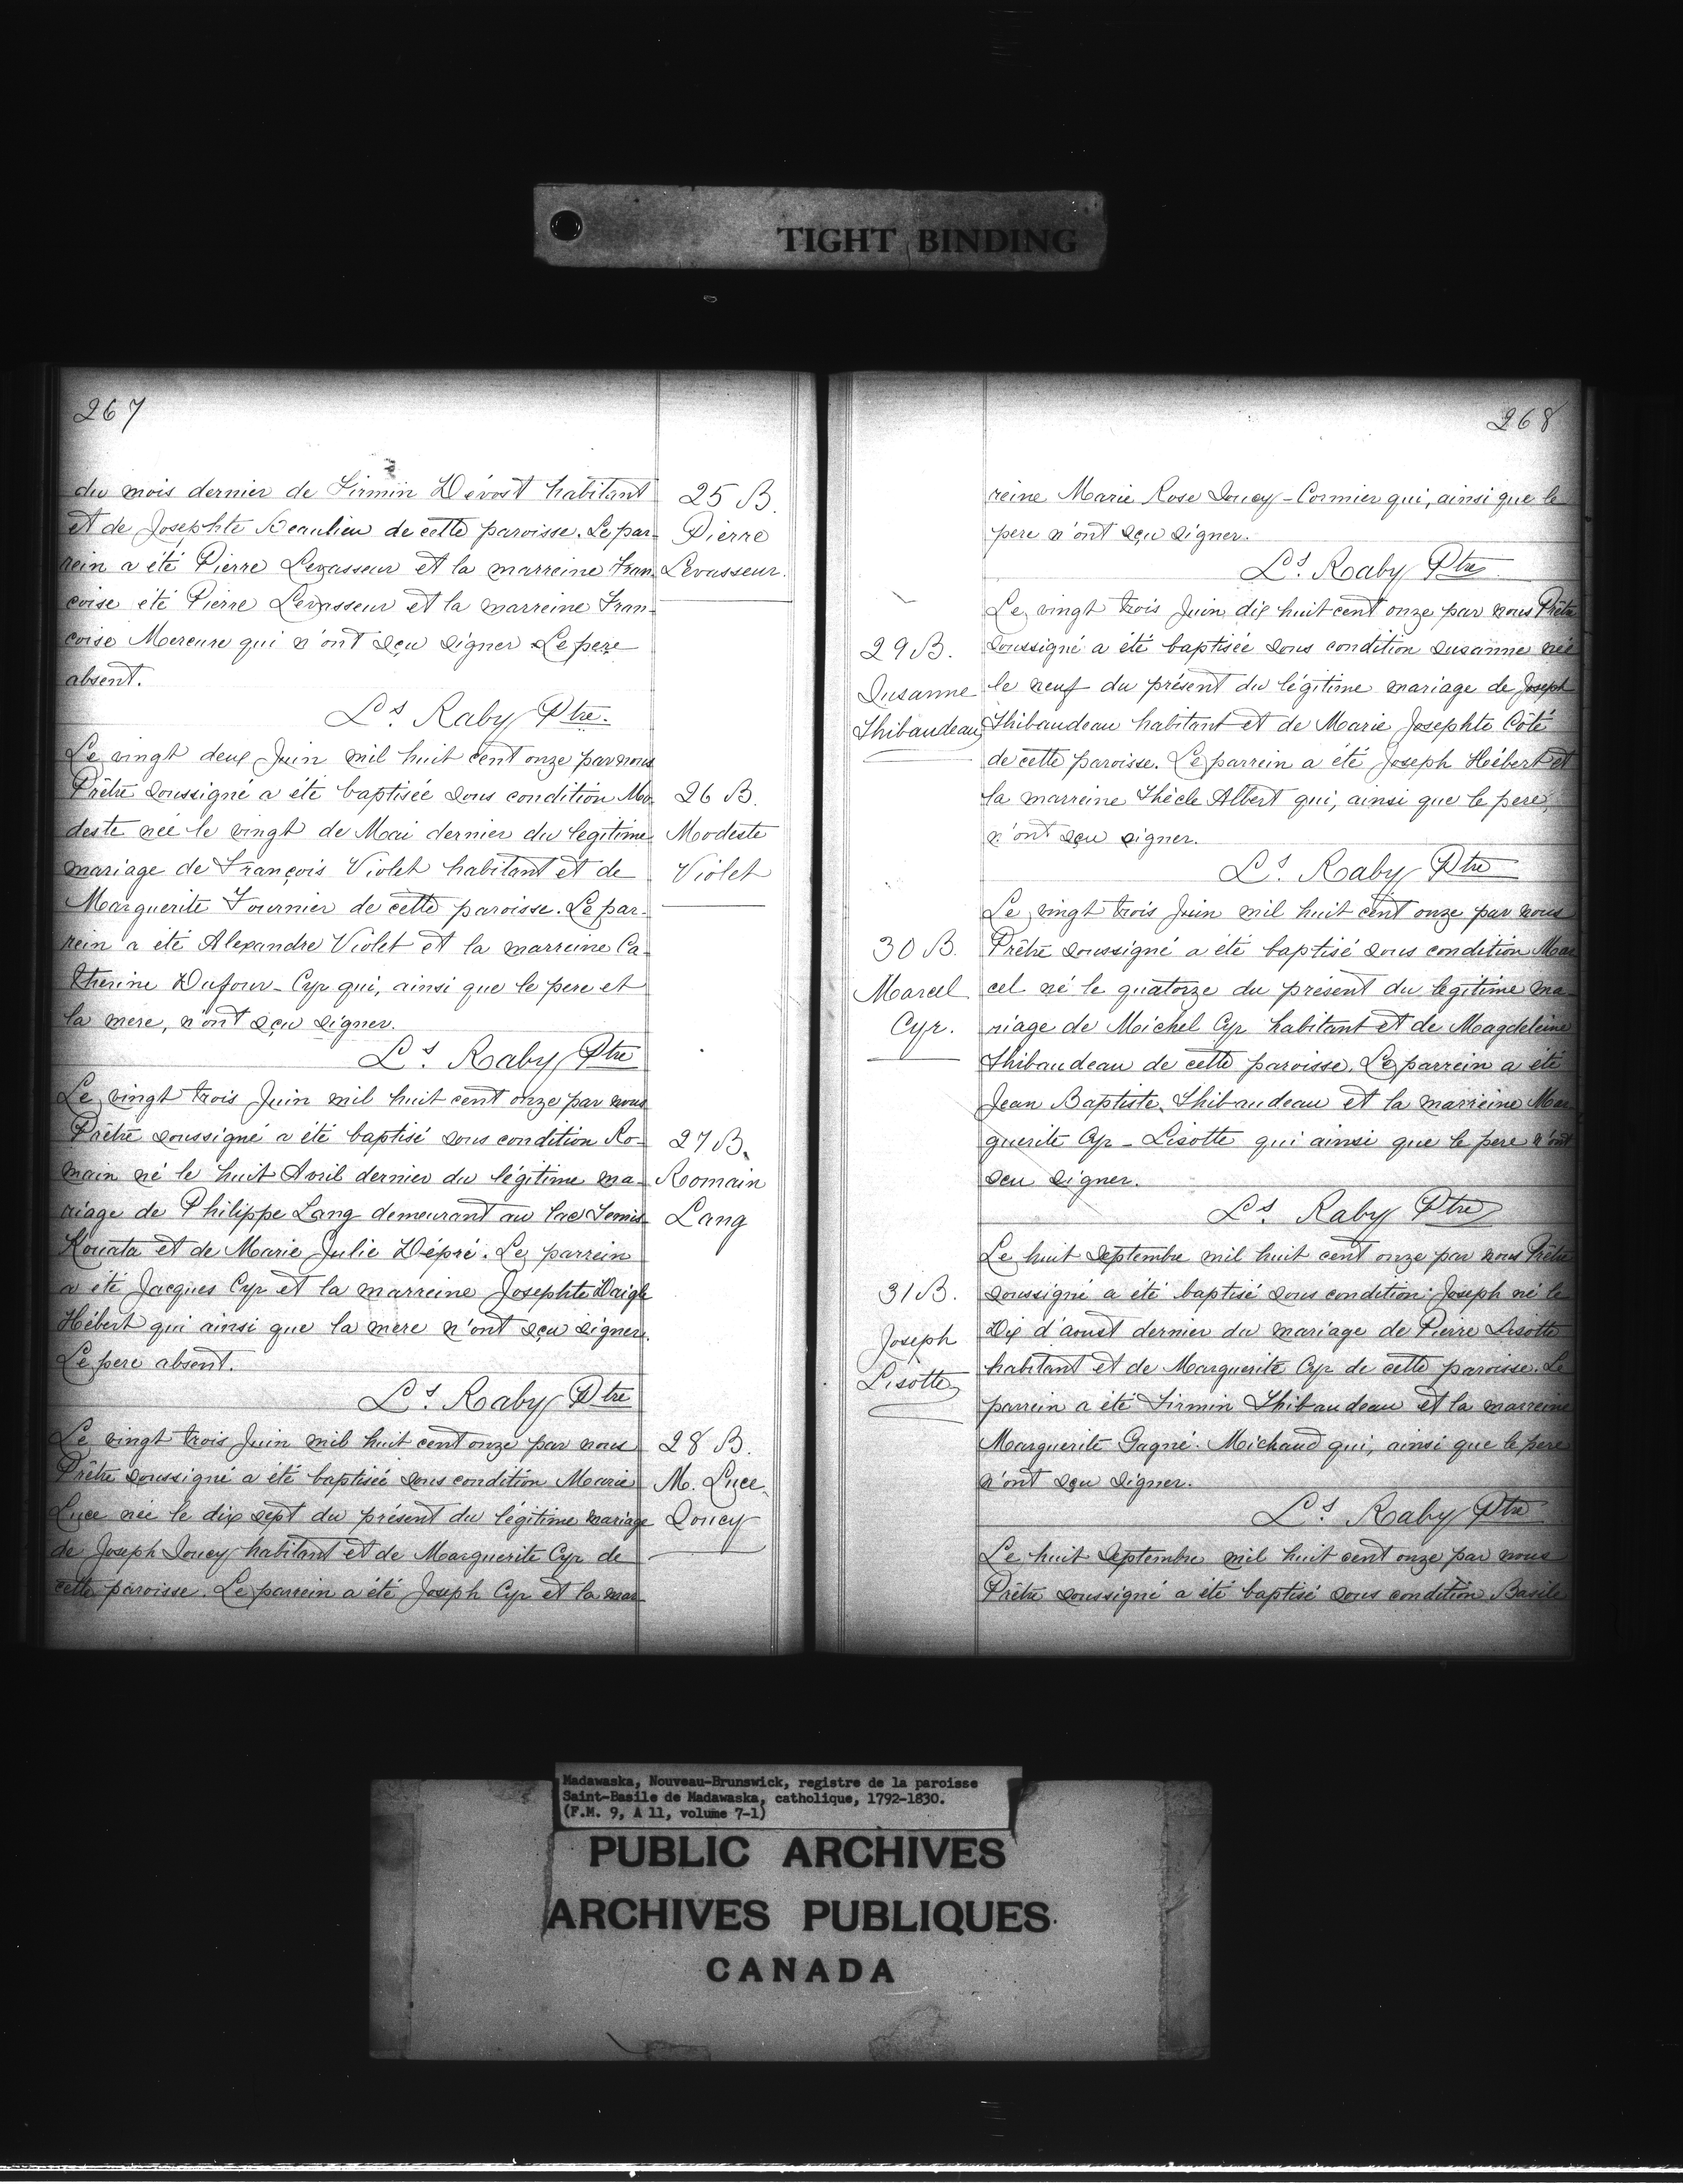 TIGHT BINDING
267
du mois dernier de Firmin Dévost habitant
et de Josephte Beaulieu de cette paroisse. Le par-
rein a été Pierre Levasseur et la marreine Fran-
çoise été Pierre Levasseur et la marreine Fran-
çoise Mercure qui n'ont sçu signer Le pere
absent.
Ls. Raby Ptre.
25 B.
Pierre
Levasseur.
Le vingt deux Juin mil huit cent onze par nous
Prêtre soussigné a été baptisée sous condition Mo-
deste née le vingt de Mai dernier du legitime
mariage de François Violet habitant et de
Marguerite Fournier de cette paroisse. Le par-
rein a été Alexandre Violet et la marreine Ca-
therine Dufour-Cyr qui, ainsi que le pere et
la mere, n'ont sçu signer.
Ls. Raby Ptre
26 B.
Modeste
Violet
Le vingt trois Juin mil huit cent onze par nous
Prêtre soussigné a été baptisé sous condition Ro-
main né le huit Avril dernier du légitime ma-
riage de Philippe Lang demeurant au lac Temis
Kouata et de Marie Julie Dépré. Le parrein
a été Jacques Cyr et la marreine Josephte Daigle
Hébert qui ainsi que la mere n'ont sçu signer.
Le pere absent.
Ls. Raby Ptre
27 B.
Romain
Lang
Le vingt trois Juin mil huit cent onze par nous
Prêtre soussigné a été baptisée sous condition Marie
Luce née le dix sept du présent du légitime mariage
de Joseph Soucy habitant et de Marguerite Cyr de
cette paroisse. Le parrein a été Joseph Cyr et la mar-
28 B.
M. Luce
Soucy
268
reine Marie Rose Soucy-Cormier qui, ainsi que le
pere n'ont sçu signer.
Ls. Raby Ptre
Le vingt trois Juin dix huit cent onze par nous Prêtre
soussigné a été baptisée sous condition susanne née
le neuf du présent du légitime mariage de Joseph
Thibaudeau habitant et de Marie Josephte Côté
de cette paroisse. Le parrein a été Joseph Hébert et
la marreine Thècle Albert qui, ainsi que le pere,
n'ont sçu signer.
Ls. Raby Ptre
29 B.
Susanne
Thibaudeau
Le vingt trois Juin mil huit cent onze par nous
Prêtre soussigné a été baptisé sous condition Mar
cel né le quatorze du présent du legitime ma-
riage de Michel Cyr habitant et de Magdeleine
Thibaudeau de cette paroisse. Le parrein a été
Jean Baptiste Thibaudeau et la marreine Mar
guerite Cyr-Lisotte qui ainsi que le pere n'ont
sçu signer.
Ls. Raby Ptre
30 B.
Marcel
Cyr.
Le huit Septembre mil huit cent onze par nous Prêtre
soussigné a été baptisé sous condition Joseph né le
Dix d'aoust dernier du mariage de Pierre Lisotte
habitant et de Marguerite Cyr de cette paroisse. Le
parrein a été Firmin Thibaudeau et la marreine
Marguerite Gagné-Michaud qui, ainsi que le pere
n'ont sçu signer.
Ls. Raby Ptre
31 B.
Joseph
Lisotte
Le huit Septembre mil huit cent onze par nous
Prêtre soussigné a été baptisé sous condition Basile
Madawaska, Nouveau-Brunswick, registre de la paroisse
Saint-Basile de Madawaska, catholique, 1792-1830.
(F.M. 9, A 11, volume 7-1)
PUBLIC ARCHIVES
ARCHIVES PUBLIQUES
CANADA